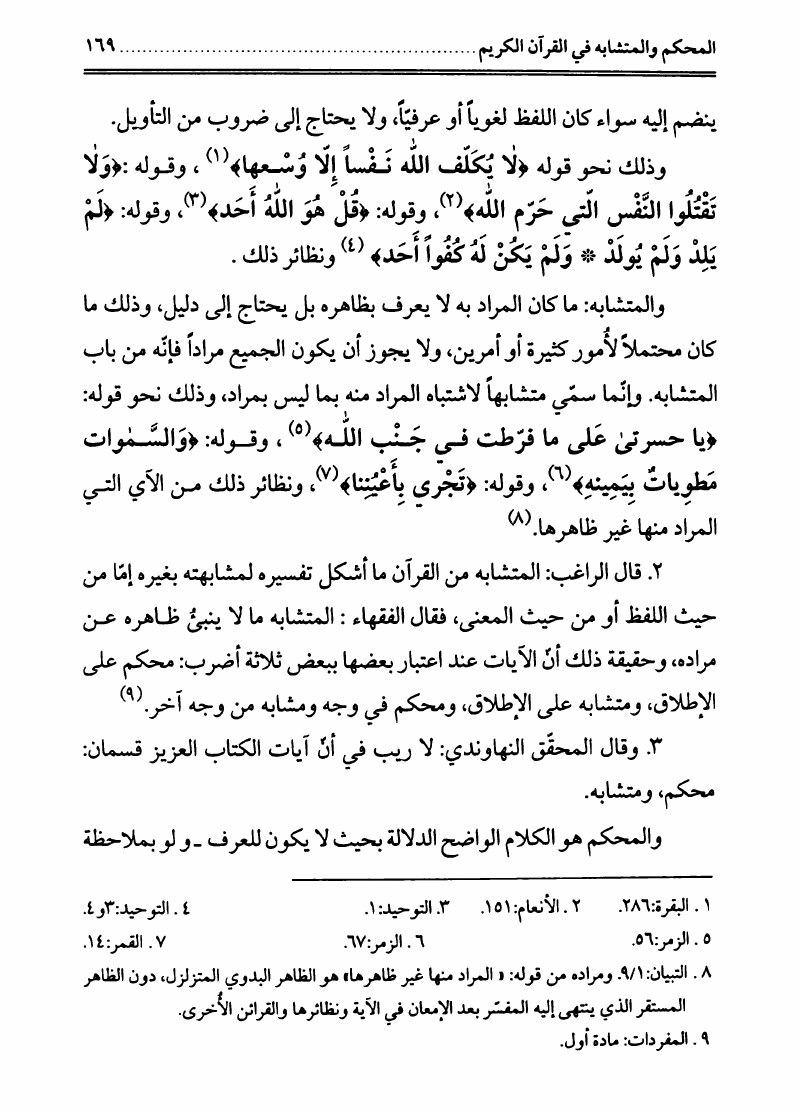 المحكم والمتشابه في القرآن الكريم ........................................................ ١٦٩
ينضم إليه سواء كان اللفظ لغوياً أو عرفيّاً، ولا يحتاج إلى ضروب من التأويل.
وذلك نحو قوله ﴿لَا يُكَلّف الله نَـفْساً إِلّا وُسْـعها﴾(١) ، وقـوله :﴿وَلَا
تَقْتُلُوا النَّفْس الّتي حَرّم الله﴾(٢)، وقوله: ﴿قُلْ هُوَ اللهُ أَحَد﴾(٣)، وقوله: ﴿لَمْ
يَلِدْ وَلَمْ يُولَدْ * وَلَمْ يَكُنْ لَهُ كُفُواً أَحَد﴾ (٤) ونظائر ذلك .
والمتشابه: ما كان المراد به لا يعرف بظاهره بل يحتاج إلى دليل، وذلك ما
كان محتملاً لأُمور كثيرة أو أمرين، ولا يجوز أن يكون الجميع مراداً فإنّه من باب
المتشابه. وإنّما سمّي متشابهاً لاشتباه المراد منه بما ليس بمراد، وذلك نحو قوله:
﴿يا حسرتىٰ عَلى ما فرّطت فـي جَـنْب اللـه﴾(٥) ، وقـوله: ﴿وَالسَّـمٰوات
مَطوِياتٌ بِيَمِينهِ﴾(٦)، وقوله: ﴿تَجْري بِأَعْيُنِنا﴾(٧)، ونظائر ذلك مـن الآي التـي
المراد منها غير ظاهرها.(٨)
٢. قال الراغب: المتشابه من القرآن ما أشكل تفسيره لمشابهته بغيره إمّا من
حيث اللفظ أو من حيث المعنى، فقال الفقهاء : المتشابه ما لا ينبئُ ظـاهره عـن
مراده، وحقيقة ذلك أنّ الآيات عند اعتبار بعضها ببعض ثلاثة أضرب: محكم على
الإطلاق، ومتشابه على الإطلاق، ومحكم في وجه ومشابه من وجه آخر.(٩)
٣. وقال المحقّق النهاوندي: لا ريب في أنّ آيات الكتاب العزيز قسمان:
محكم، ومتشابه.
والمحكم هو الكلام الواضح الدلالة بحيث لا يكون للعرف ـ و لو بملاحظة
١ . البقرة:٢٨٦. ٢ . الأنعام:١٥١. ٣. التوحيد:١. ٤ . التوحيد:٣و٤.
٥ . الزمر:٥٦. ٦ . الزمر:٦٧. ٧ . القمر:١٤.
٨ . التبيان:٩/١. ومراده من قوله: «المراد منها غير ظاهرها» هو الظاهر البدوي المتزلزل، دون الظاهر
المستقر الذي ينتهى إليه المفسّر بعد الإمعان في الآية ونظائرها والقرائن الأُخرى.
٩ . المفردات: مادة أول.